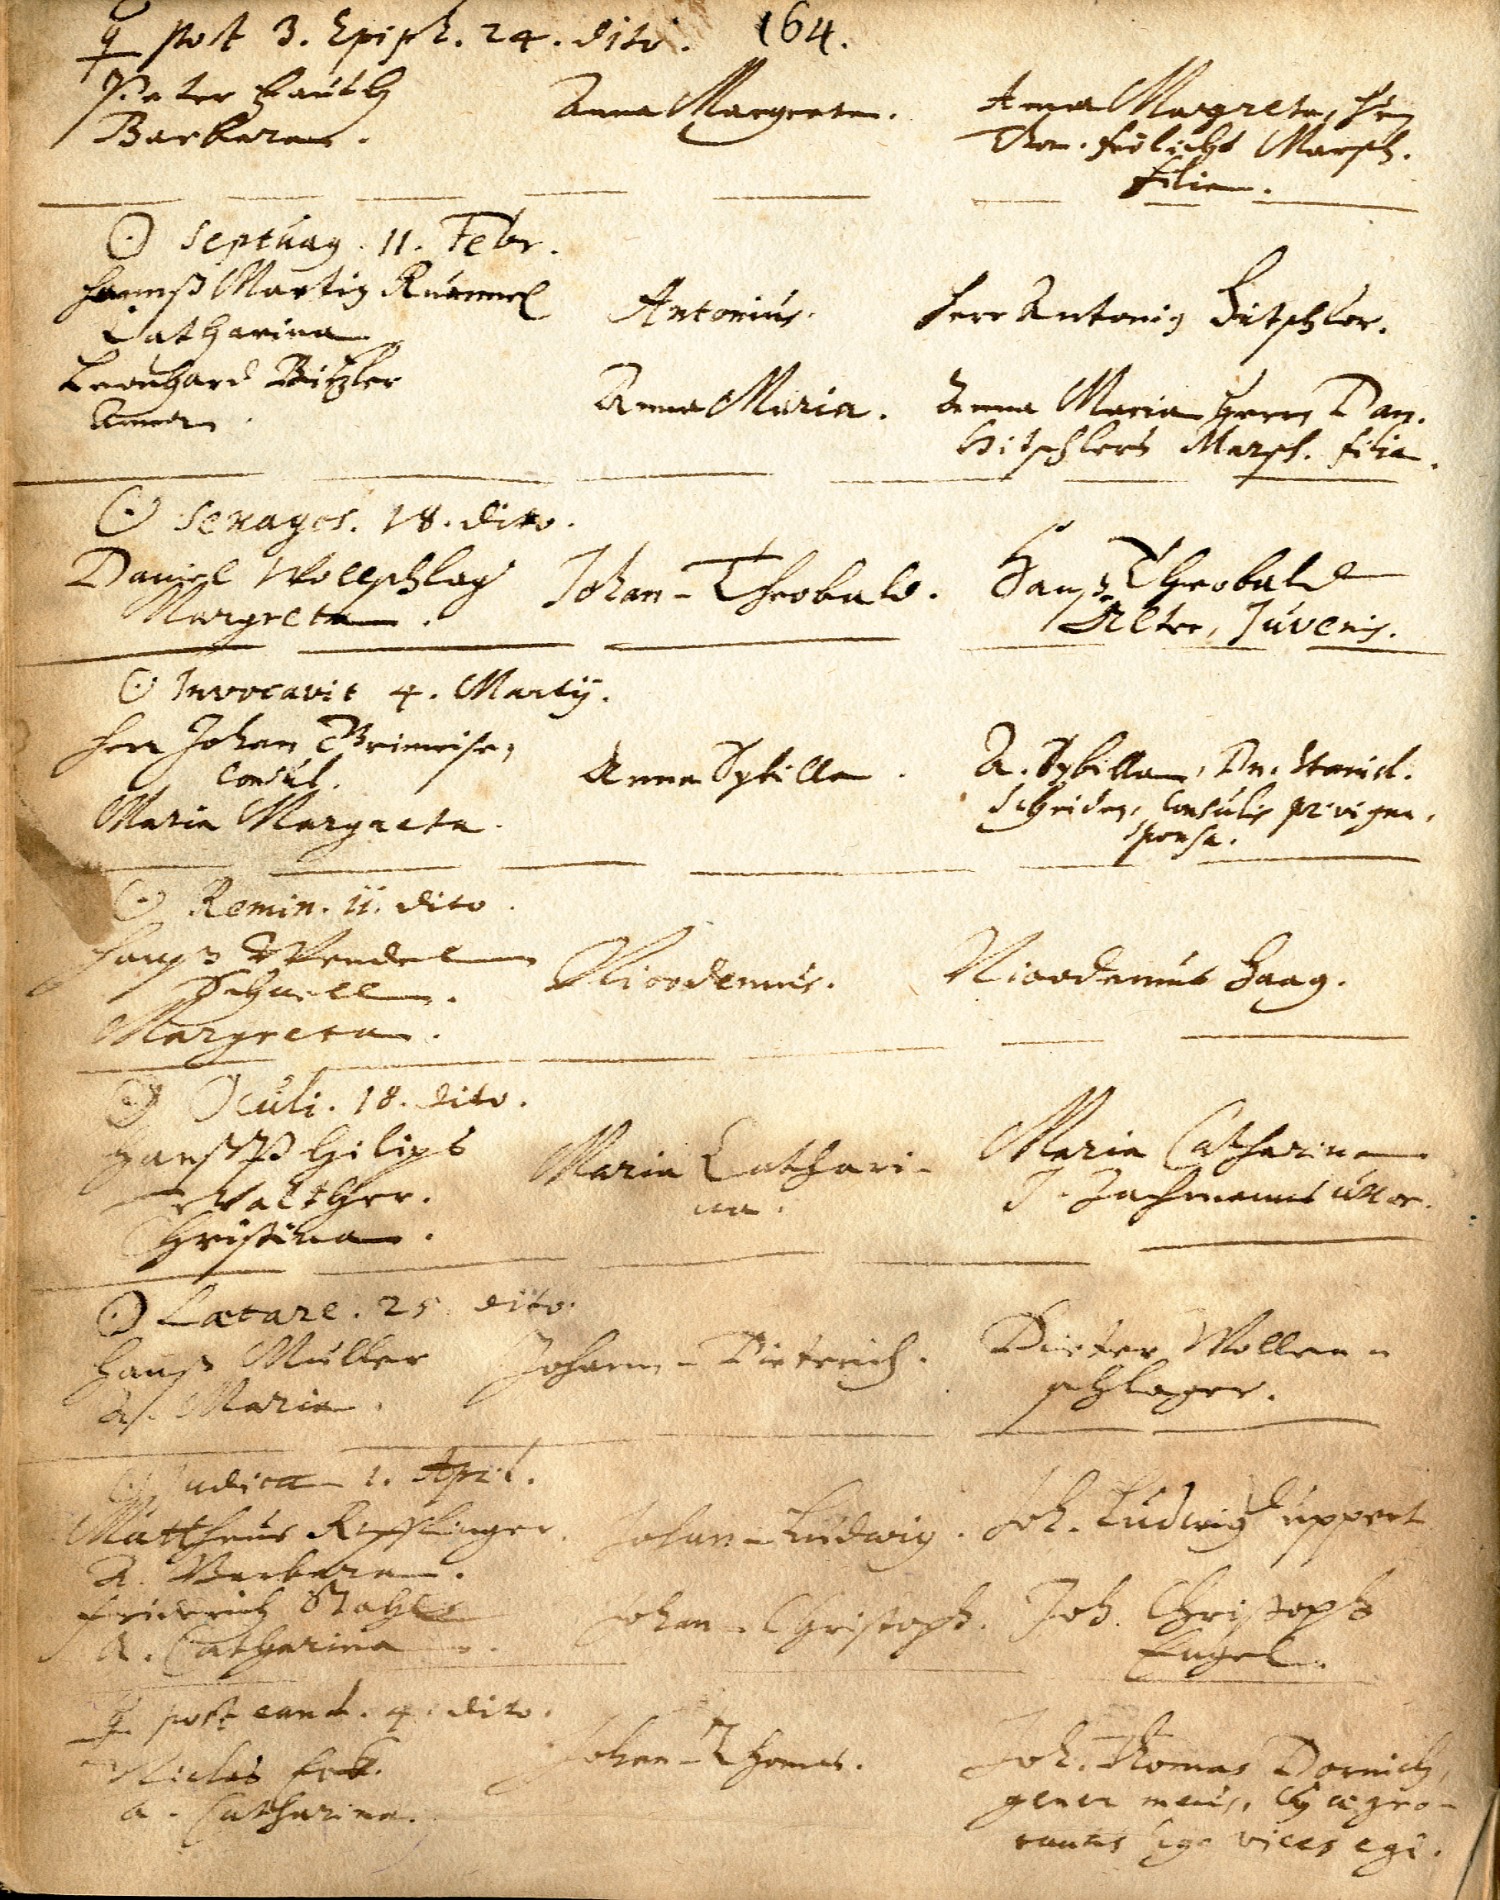 ☿ post 3. Epiph. 24. dito.
164.
Peter Fauth
Barbara.
Anna Margreta.
Anna Margreta, H.
Thom. Frölichs Marsch.
filia.
☉ Septuag. 11. Febr.
Hannß Martin Rummel
Catharina
Antonius.
Herr Antonius Hitschler.
Leonhard Bitzler
Anna
Anna Maria.
Anna Maria Herrn Dan.
Hitschlers Marsch. filia.
☉ Sexages. 18. dito.
Daniel Wollschlag
Margreta.
Johan-Theobald.
Hanß Theobald
Juvenis.
☉ Invocavit 4. Martij.
Herr Johan
Consul.
Maria Margreta.
Anna Sybilla.
A. Sybilla, Dn.
Consulis privigna,
sponsa.
☉ Remin. 11. dito.
Hanß Wendel
Schnell.
Margreta.
Nicodemus.
Nicodemus Haag.
☉ Oculi. 18. dito.
Hanß Philips
Walther.
Christina.
Maria Cathari-
na.
Maria Catharina
☉ Laetare. 25. dito.
Hanß Müller
A. Maria.
Johann-Dieterich.
Dieter Wollen-
schlager.
☉ Judica 1. April.
Mattheus
A. Barbara.
Johan-Ludwig.
Joh. Ludwig Ruppert
Friderich Stahl
A. Catharina
Johan-Christoph.
Joh. Christoph
Engel.
☿ post eand. 4. dito.
Niclas Eck.
A. Catharina.
Johan-Thomas.
Joh. Thomas Dornich,
gener meus, cuj aegro-
tantis ego vices egi.